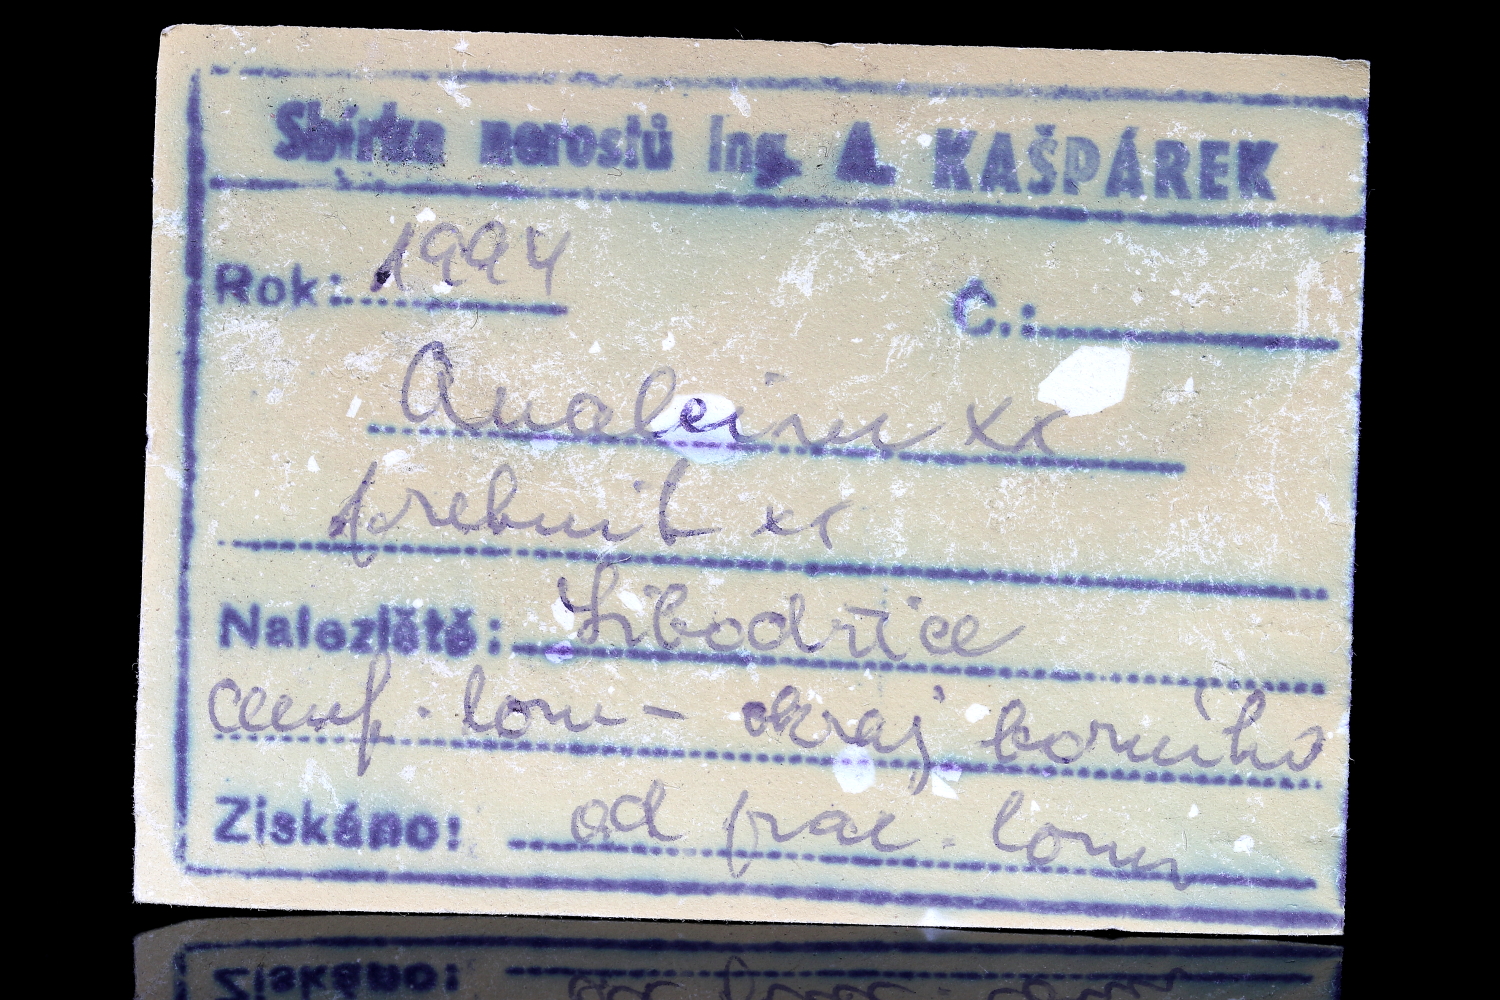 Sbírka nerostů ing. A. KAŠPÁREK
Rok: 1994
Č.:
Analcim xx
prehnit xx
Naleziště: Libodřice
lom - okraj horního
Získáno: od prac. lomu